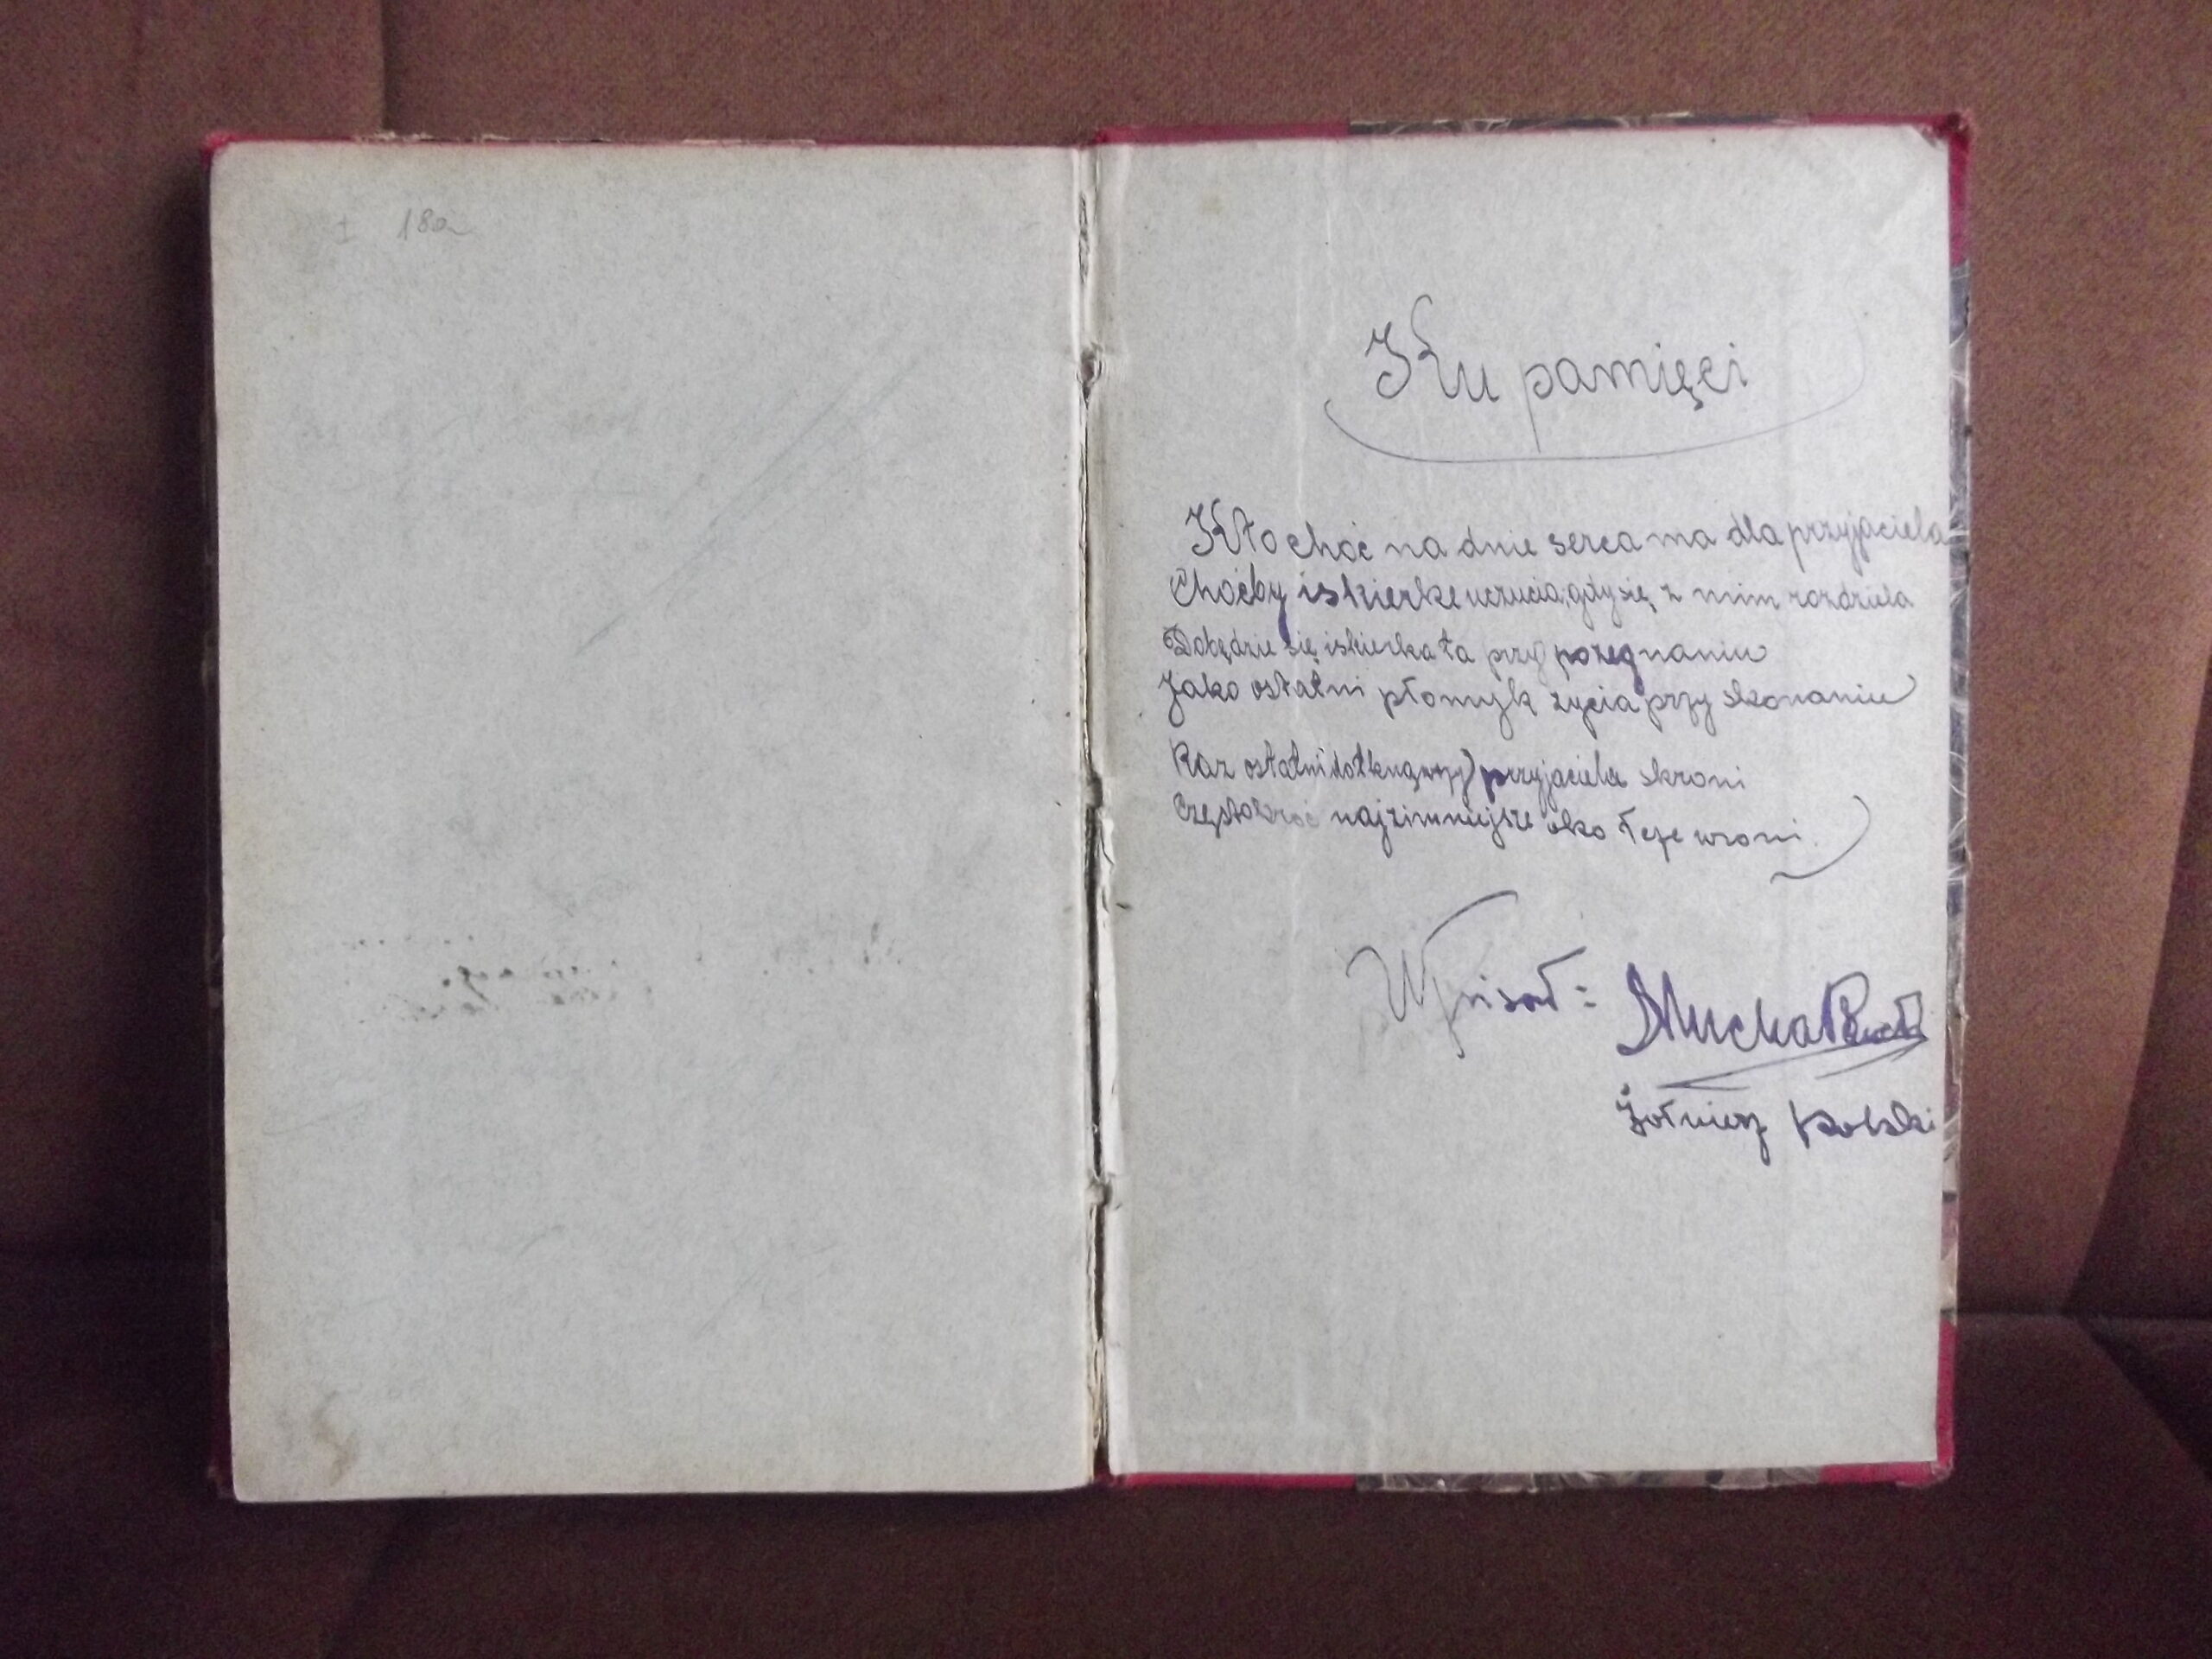 180
Ku pamięci
Kto choć na dnie serca ma dla przyjaciela
Choćby iskierke uczucia, gdy się z nim rozdziela
Dobędzie się iskierka ta przy pożegnaniu
Jako ostatni płomyk życia przy skonaniu
Raz ostatni przyjaciela skroni
Częstokroć najzimniejsze oko łzę wroni.
Wpisał: Mucha
Żołnierz Polski